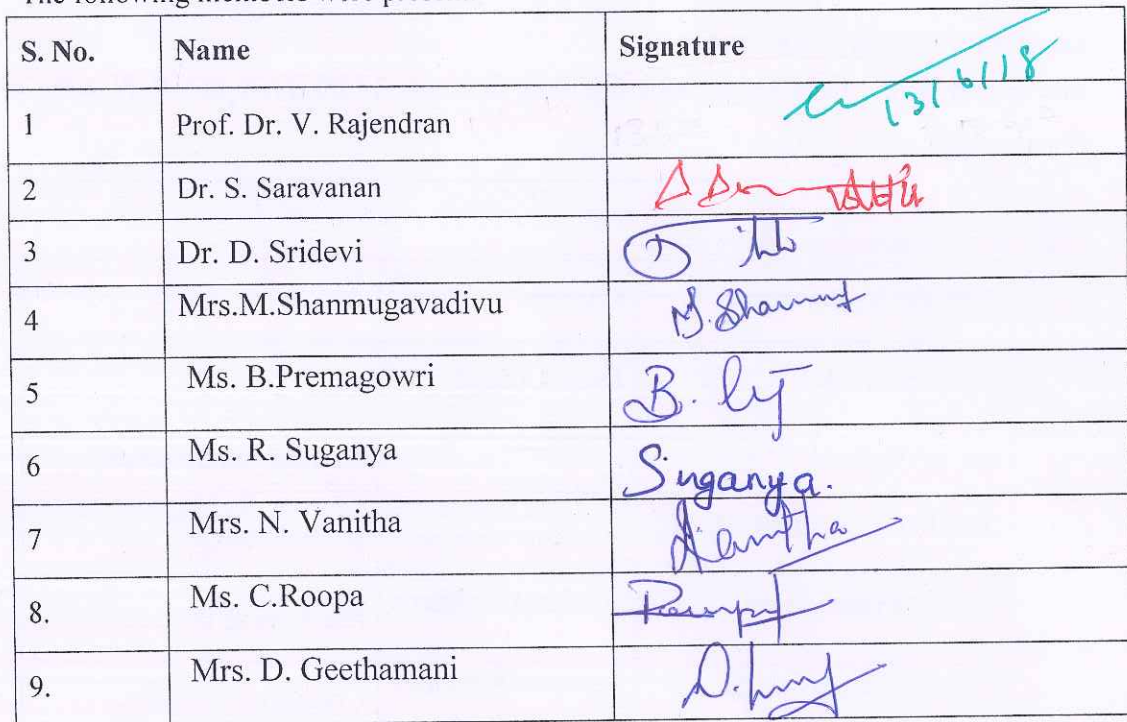 The following members were present
S. No. Name Signature
1 Prof. Dr. V. Rajendran 13/6/18
2 Dr. S. Saravanan
3 Dr. D. Sridevi
4 Mrs.M.Shanmugavadivu
5 Ms. B.Premagowri B.
6 Ms. R. Suganya Suganya.
7 Mrs. N. Vanitha
8. Ms. C.Roopa
9. Mrs. D. Geethamani D.